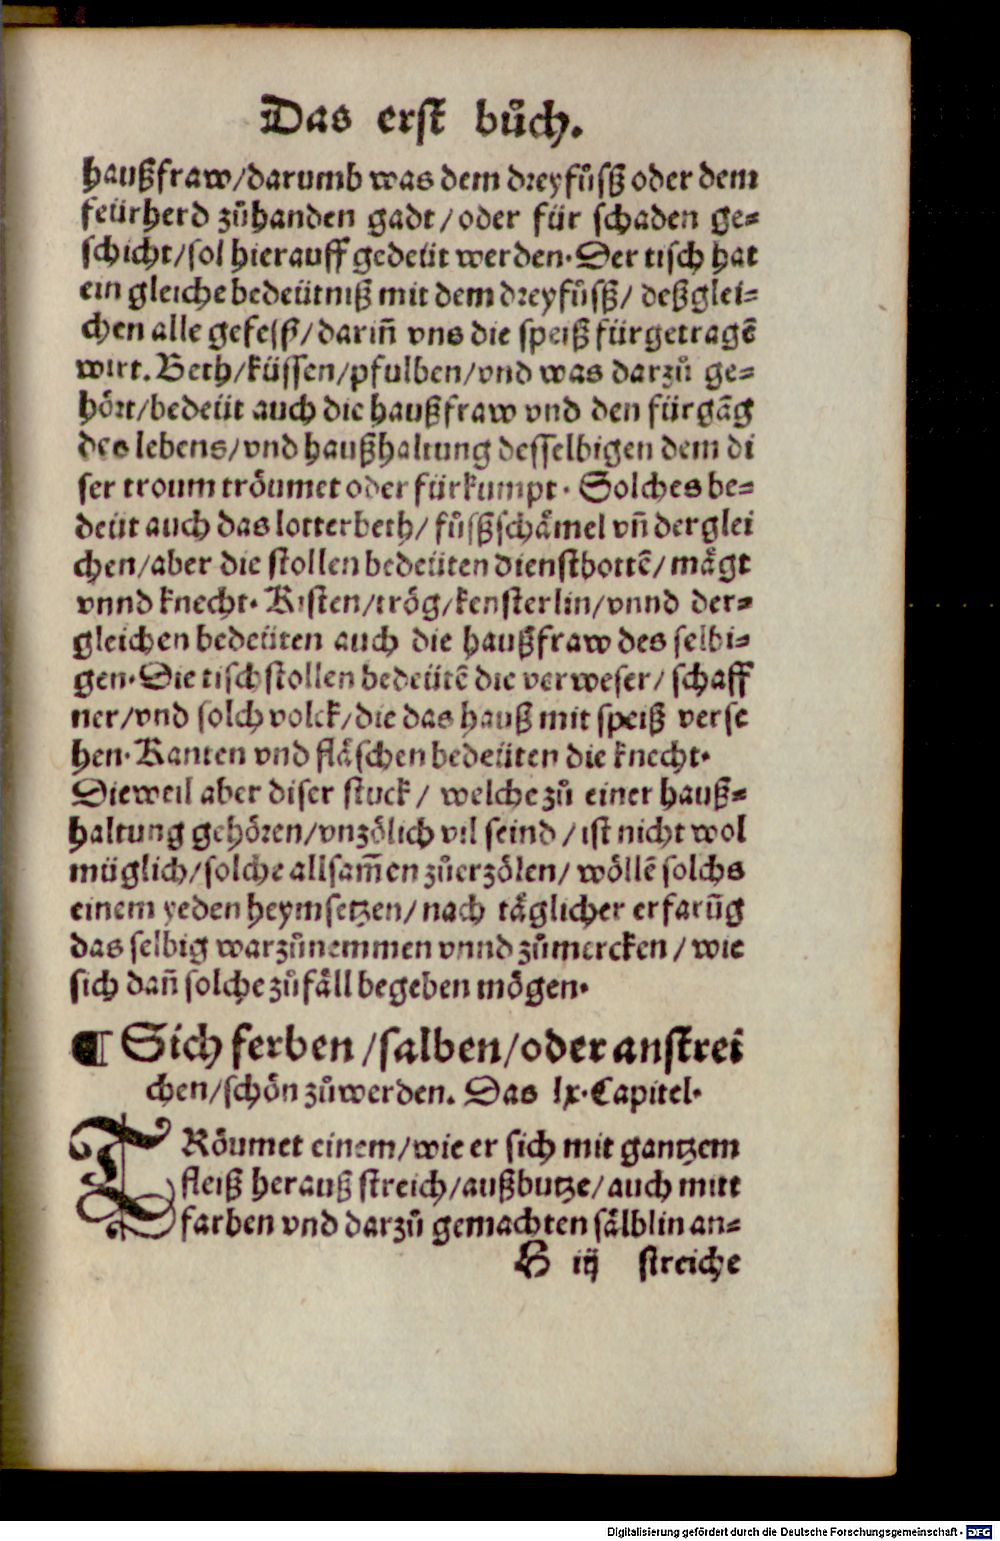 Das erst bůch.
haußfraw/darumb was dem dreyfůsß oder dem
feürherd zůhanden gadt/oder für schaden ge-
schicht/sol hierauff gedeüt werden. Der tisch hat
ein gleiche bedeütniß mit dem dreyfůsß/ deßglei-
chen alle gefesß/darin̄ vns die speiß fürgetragē
wirt. Beth/küssen/pfulben/vnd was darzů ge-
hört/bedeüt auch die haußfraw vnd den fürgāg
des lebens/vnd haußhaltung desselbigen dem di
ser troum tröumet oder fürkumpt. Solches be-
deüt auch das lotterbeth/ fůsßschåmel vn̄ derglei
chen/aber die stollen bedeüten dienstbottē/ mågt
vnnd knecht. Kisten/trög/kensterlin/vnnd der-
gleichen bedeüten auch die haußfraw des selbi-
gen. Die tischstollen bedeütē die verweser/ schaff
ner/vnd solch volck/die das hauß mit speiß verse
hen. Kanten vnd fläschen bedeüten die knecht.
Dieweil aber diser stuck / welche zů einer hauß-
haltung gehören/vnzölich vil seind / ist nicht wol
müglich/solche allsam̄en zůerzölen/ wöllē solchs
einem yeden heymsetzen/ nach täglicher erfarūg
das selbig warzůnemmen vnnd zůmercken / wie
sich dan̄ solche zůfåll begeben mögen.
¶ Sich ferben /salben/oder anstrei
chen/schön zůwerden. Das lx. Capitel.
TRöumet einem/wie er sich mit gantzem
fleiß herauß streich/außbutze/auch mitt
farben vnd darzů gemachten sålblin an-
H iij streiche
Digitalisierung gefördert durch die Deutsche Forschungsgemeinschaft - DFG